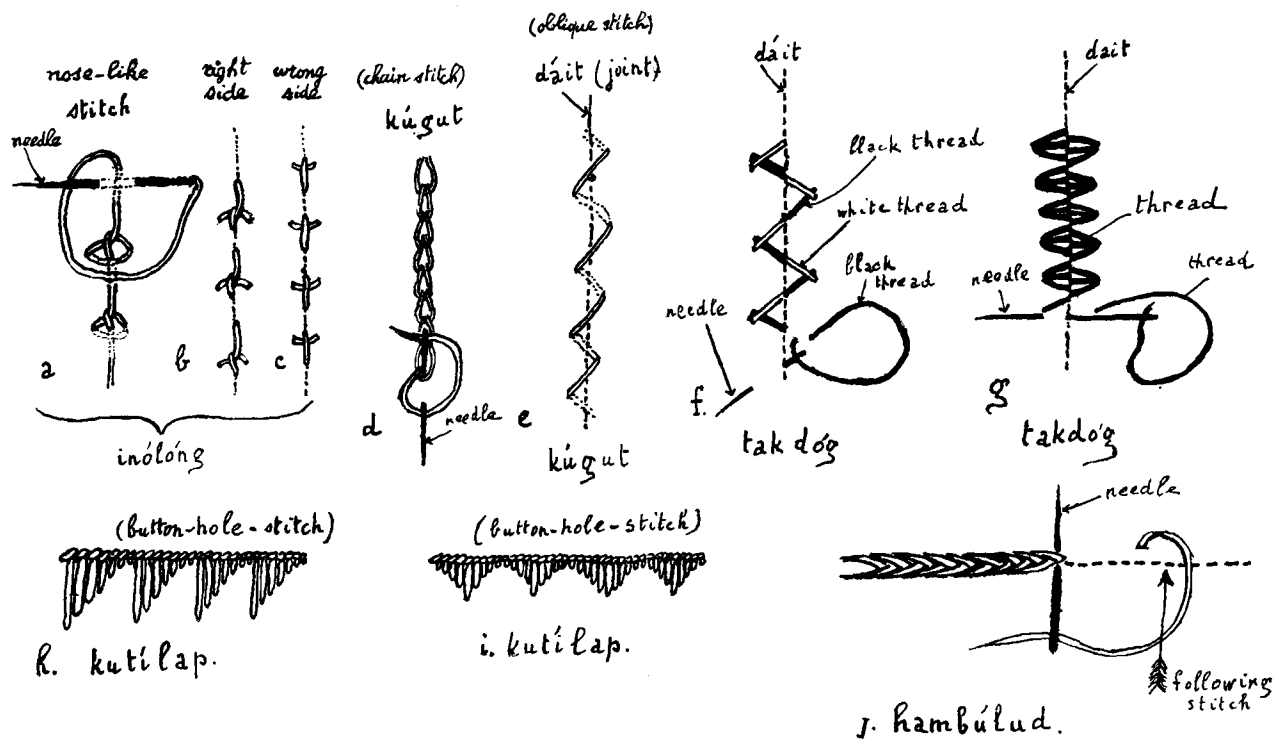 nose-like
stitch
needle
a
right
side
b
wrong
side
c
inólóng
(chain stitch)
kúgut
d
needle
(oblique stitch)
dáit (joint)
e
kúgut
dáit
black thread
white thread
black
thread
needle
f.
tak dóg
dait
thread
needle
thread
g
takdóg
(button-hole-stitch)
h. kutílap.
(button-hole-stitch)
i. kutílap.
needle
following
stitch
j. hambúlud.